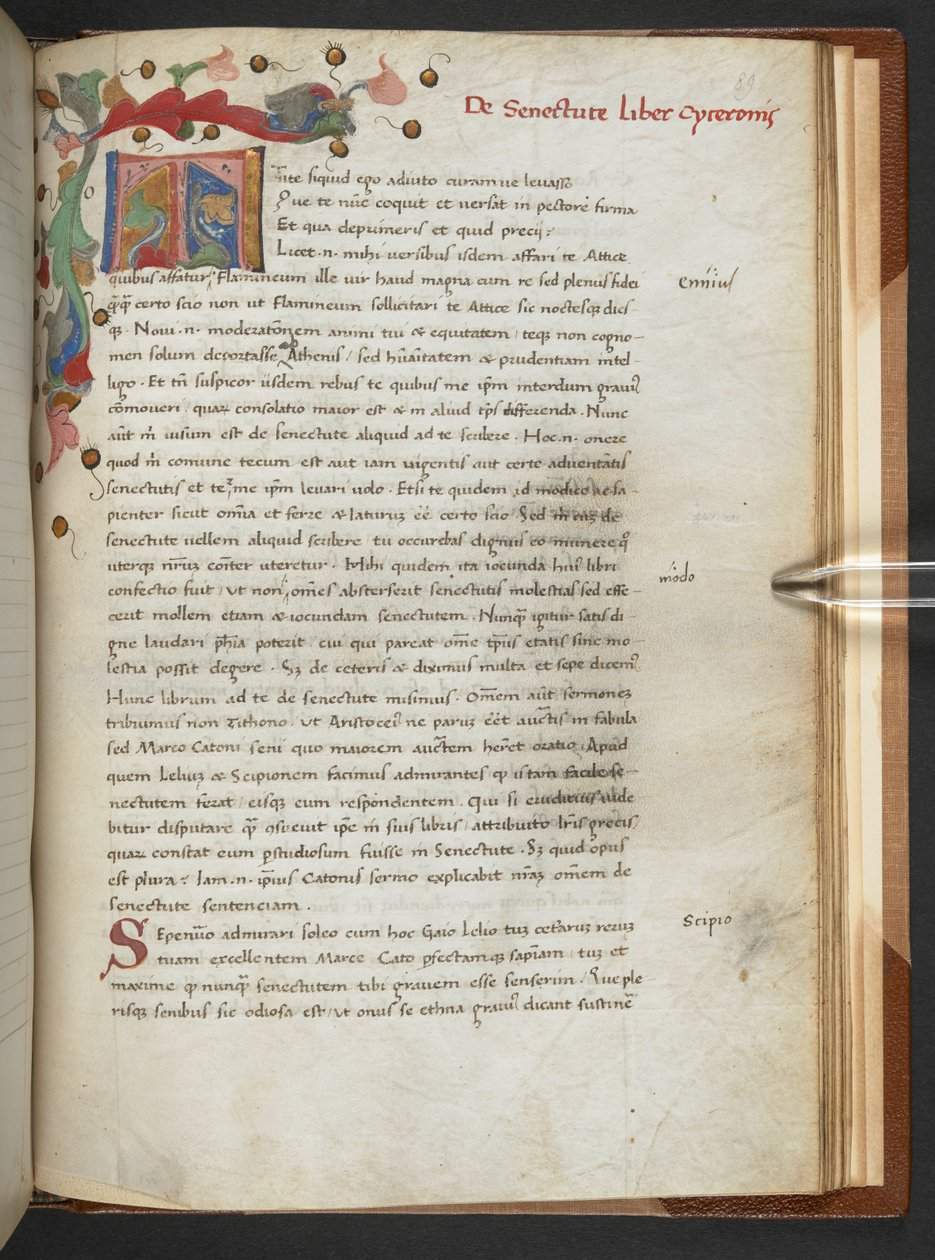 89
De Senectute liber Cyceronis
Tite siquid ego adiuto curam ue leuasso
Que te nūc coquit et uersat in pectore firma
Et qua deprimeris et quid precij?
Licet .n. mihi uersibus isdem affari te Attice
quibus affatur Flamineum ille uir haud magna cum re sed plenus fidei
ennius
certo scio non ut Flamineum sollicitari te Attice sic noctesq dies
q. Noui .n. moderatōnem animi tui & equitatem / teq non cogno-
men solum deportasse Athenis / sed hūāītatem & prudentiam intel-
ligo. Et tn̄ suspicor iisdem rebus te quibus me ip̄m interdum graui9
cōmoueri quaꝝ consolatio maior est & in aliud tp̄s differenda. Nunc
aūt m̄ uisum est de senectute aliquid ad te scribere. Hoc .n. onere
quod m̄ comune tecum est aut iam urgentis aut certe aduentātis
senectutis et te & me ip̄m leuari uolo. Etsi te quidem id modice ac sa-
pienter sicut om̄ia et ferre & laturuꝫ eē certo scio Sed m̄ cuꝫ de
senectute uellem aliquid scribere tu occurebas dignus eo munere q
uterq nr̄uꝫ cōiter uteretur. Mihi quidem ita iocunda hui9 libri
modo
confectio fuit / ut non om̄es absterserit senectutis molestias sed effe-
cerit mollem etiam & iocundam senectutem. Nunq̄ igitur satis di-
gne laudari ph̄ia poterit cui qui pareat om̄e tp̄us etatis sine mo-
lestia possit degere. Sꝫ de ceteris & diximus multa et sepe dicem9
Hunc librum ad te de senectute misimus. Om̄em aūt sermoneꝫ
tribuimus non Tithono. ut Aristoce9 ne paruꝫ eēt auctis in fabula
sed Marco Catoni seni quo maiorem auctem her̄et oratio. Apud
quem Leliuꝫ & Scipionem facimus admirantes q istam facile se-
nectutem ferat / eisq eum respondentem. Qui si eruditius uide
bitur disputare q̄ ꝯsueuit ip̄e in suis libris / attribuito lr̄is grecis
quaꝝ constat eum pstudiosum fuisse in Senectute. Sꝫ quid opus
est plura? Iam .n. ip̄ius Catonis sermo explicabit nr̄aꝫ om̄em de
senectute sentenciam.
Sepenūo admirari soleo cum hoc Gaio Lelio tuꝫ cetaruꝫ reruꝫ
Scipio
tuam excellentem Marce Cato pfectamq sap̄iam / tuꝫ et
maxime q nunq̄ senectutem tibi grauem esse senserim. Que ple
risq senibus sic odiosa est / ut onus se ethna graui9 dicant sustinē